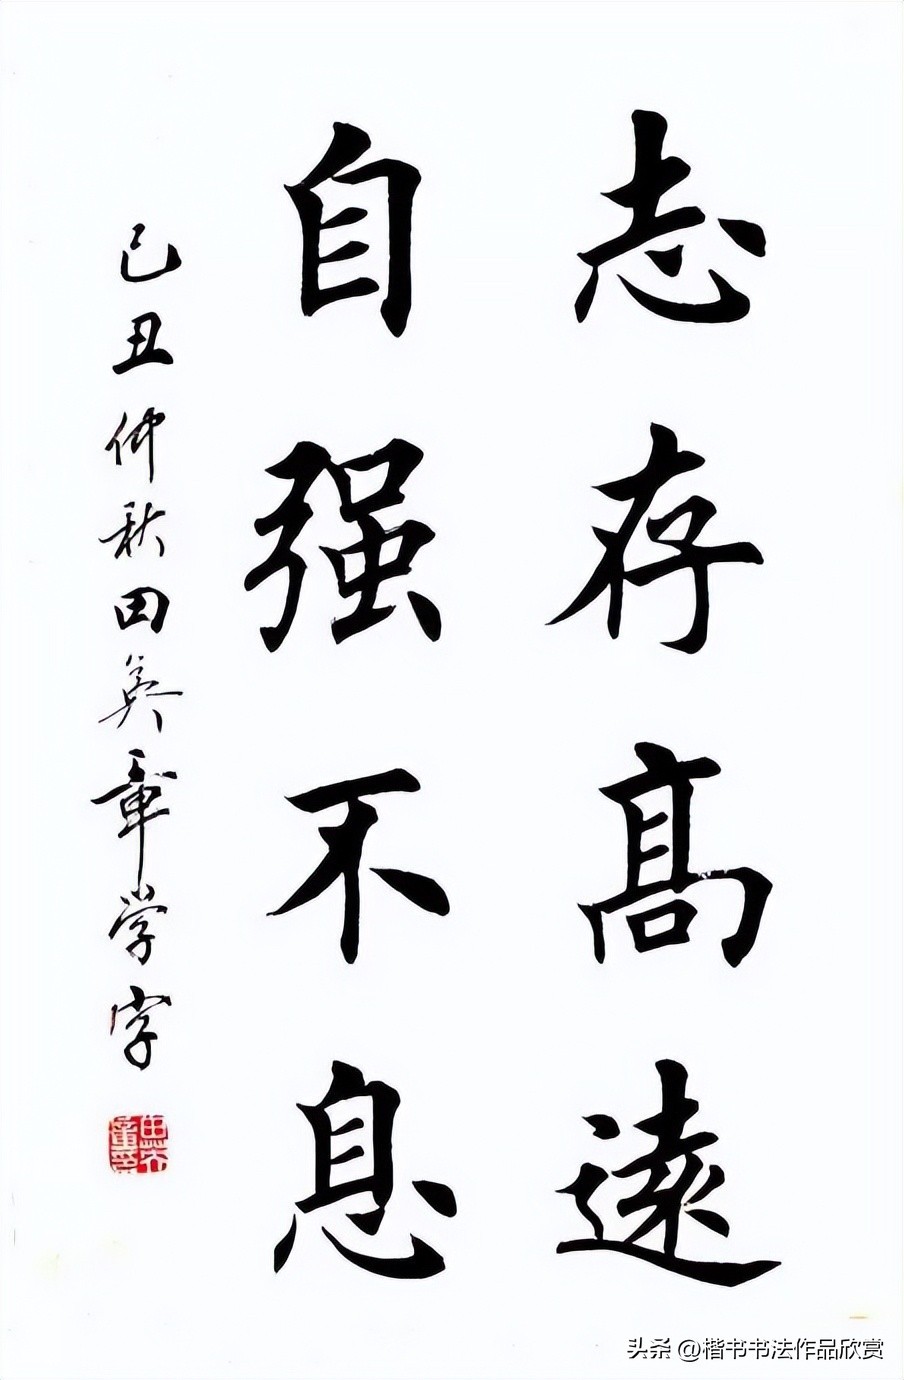 志存高遠
自强不息
己丑仲秋田英章学字
头条 @楷书书法作品欣赏